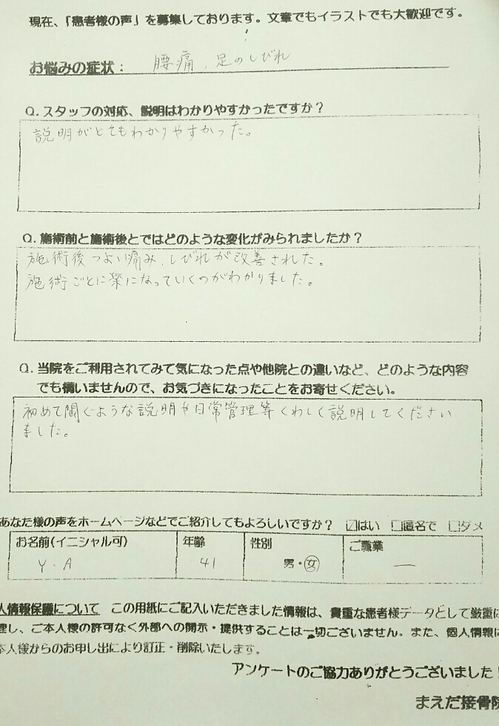 現在、「患者様の声」を募集しております。文章でもイラストでも大歓迎です。
お悩みの症状： 腰痛、足のしびれ
Q. スタッフの対応、説明はわかりやすかったですか？
説明がとてもわかりやすかった。
Q. 施術前と施術後とではどのような変化がみられましたか？
施術後つよい痛み、しびれが改善された。
施術ごとに楽になっていくのがわかりました。
Q. 当院をご利用されてみて気になった点や他院との違いなど、どのような内容
でも構いませんので、お気づきになったことをお寄せください。
初めて聞くような説明や日常管理等くわしく説明してください
ました。
あなた様の声をホームページなどでご紹介してもよろしいですか？ ☑はい □匿名で □ダメ
お名前(イニシャル可) 年齢 性別 ご職業
Y・A 41 男・女 ―
人情報保護について この用紙にご記入いただきました情報は、貴重な患者様データとして厳重に
理し、ご本人様の許可なく外部への開示・提供することは一切ございません。また、個人情報に
本人様からのお申し出により訂正・削除いたします。
アンケートのご協力ありがとうございました！
まえだ接骨院